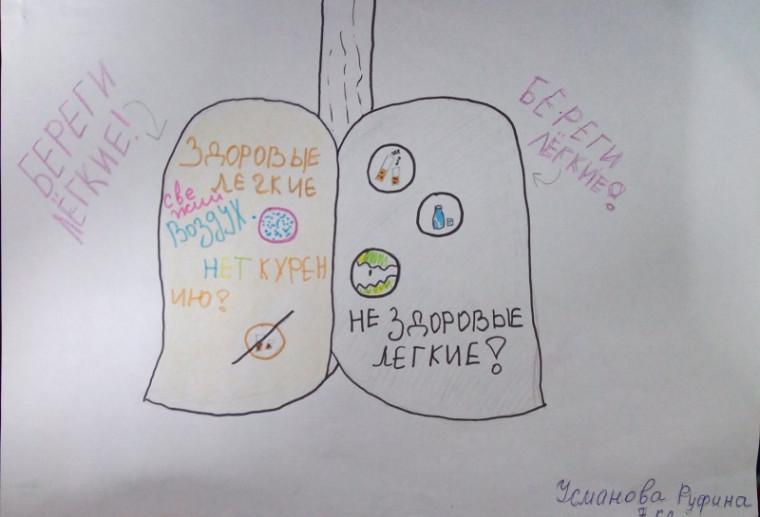 БЕРЕГИ
ЛЁГКИЕ!
ЗДОРОВЫЕ
ЛЕГКИЕ
све
жий
воздух.
НЕТ КУРЕН
ИЮ?
БЕРЕГИ
ЛЁГКИЕ!
НЕ ЗДОРОВЫЕ
ЛЕГКИЕ!
Усманова Руфина
7 кл